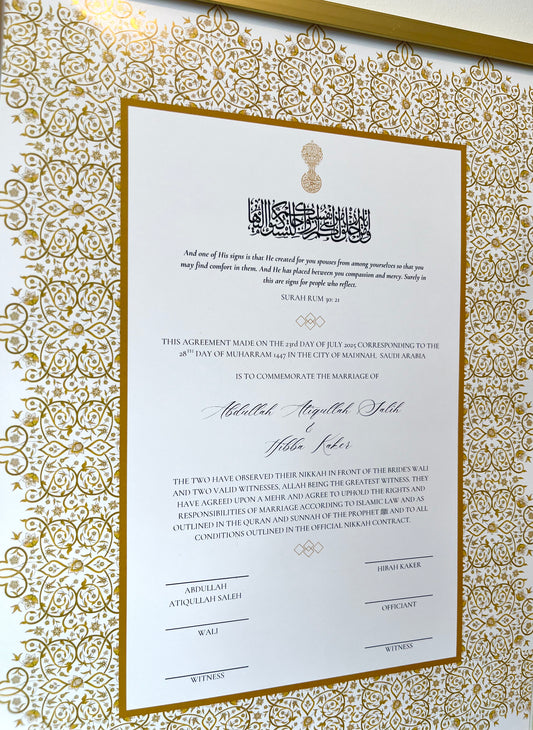 And one of His signs is that He created for you spouses from among yourselves so that you
may find comfort in them. And He has placed between you compassion and mercy. Surely in
this are signs for people who reflect.
SURAH RUM 30: 21
THIS AGREEMENT MADE ON THE 23rd DAY OF JULY 2025 CORRESPONDING TO THE
28TH DAY OF MUHARRAM 1447 IN THE CITY OF MADINAH, SAUDI ARABIA
IS TO COMMEMORATE THE MARRIAGE OF
Abdullah Atiqullah Saleh
&
Hibba Kaker
THE TWO HAVE OBSERVED THEIR NIKKAH IN FRONT OF THE BRIDES WALI
AND TWO VALID WITNESSES, ALLAH BEING THE GREATEST WITNESS. THEY
HAVE AGREED UPON A MEHR AND AGREE TO UPHOLD THE RIGHTS AND
RESPONSIBILITIES OF MARRIAGE ACCORDING TO ISLAMIC LAW AND AS
OUTLINED IN THE QURAN AND SUNNAH OF THE PROPHET ﷺ AND TO ALL
CONDITIONS OUTLINED IN THE OFFICIAL NIKKAH CONTRACT.
ABDULLAH
ATIQULLAH SALEH
HIBAH KAKER
WALI
OFFICIANT
WITNESS
WITNESS